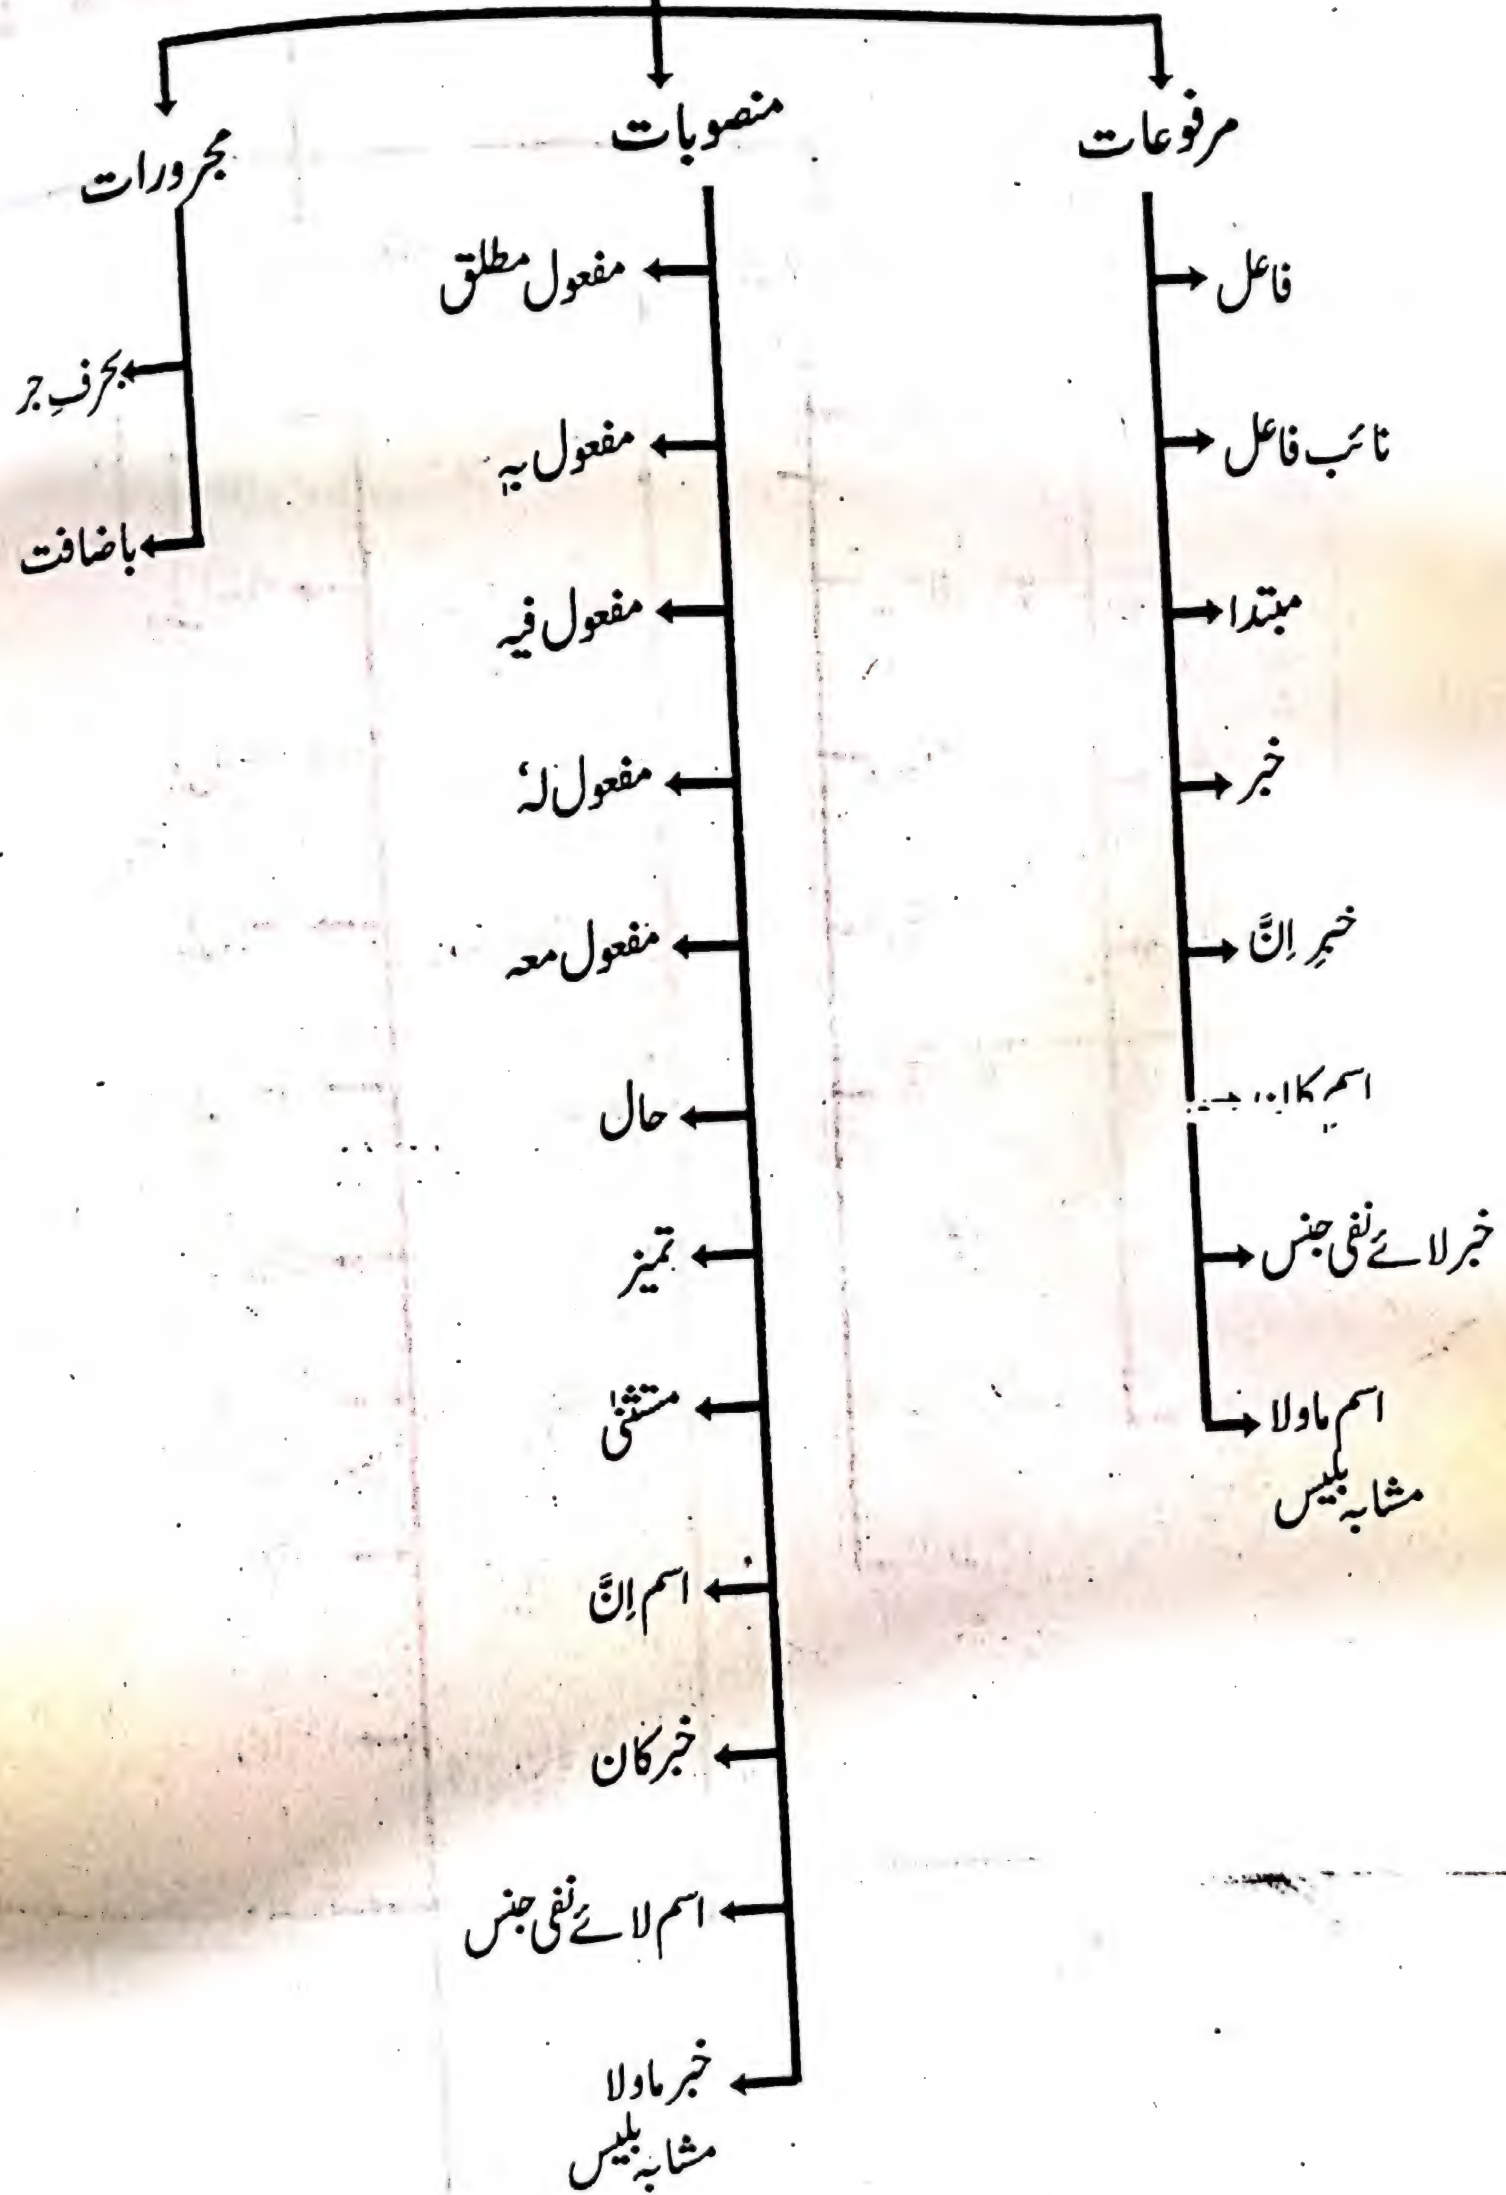 مرفوعات
فاعل
نائب فاعل
مبتدا
خبر
خبرِ اِنَّ
اسمِ
خبر لائے نفی جنس
اسم ماولا
مشابہ بلیس
منصوبات
مفعول مطلق
مفعول بہٖ
مفعول فیہ
مفعول لہٗ
مفعول معہ
حال
تمیز
مستثنیٰ
اسم اِنَّ
خبر کان
اسم لائے نفی جنس
خبر ماولا
مشابہ بلیس
مجرورات
بحرفِ جر
باضافت